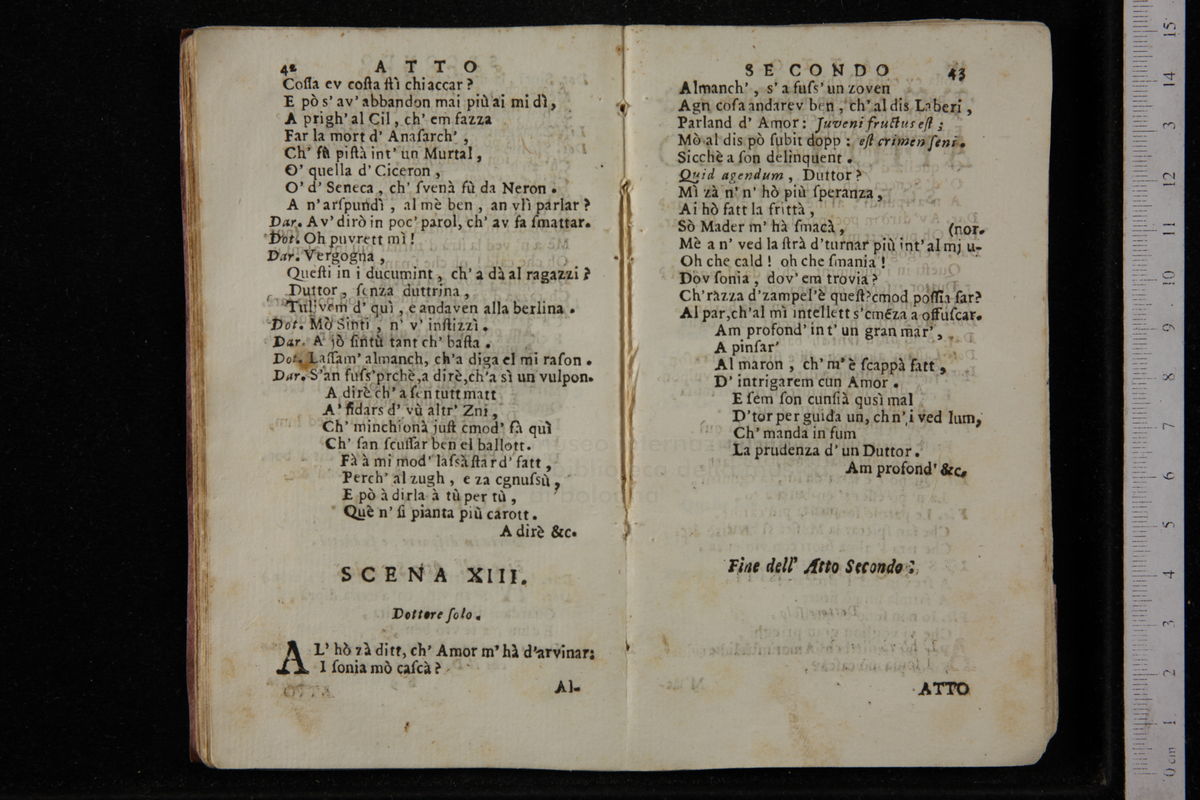 42 ATTO
Cossa ev costa stì chiaccar?
E pò s' av' abbandon mai più ai mi dì,
A prigh' al Cil, ch' em fazza
Far la mort d' Anasarch',
Ch' fù pistà int' un Murtal,
O' quella d' Ciceron,
O' d' Seneca, ch' svenà fù da Neron.
A n' arspundì, al mè ben, an vlì parlar?
Dar. Av' dirò in poc' parol, ch' av fa smattar.
Dot. Oh puvrett mì!
Dar. Vergogna,
Questi in i ducumint, ch' a dà al ragazzi?
Duttor, senza duttrina,
Tulivem d' quì, e andaven alla berlina.
Dot. Mò Sinti, n' v' instizzì.
Dar. A jò sintù tant ch' basta.
Dot. Lassam' almanch, ch'a diga el mi rason.
Dar. S'an fuss'prchè, a dirè, ch'a sì un vulpon.
A dirè ch' a sen tutt matt
A' fidars d' vù altr' Zni,
Ch' minchionà just cmod' fà quì
Ch' fan scussar ben el ballott.
Fà à mi mod' lassà star d' fatt,
Perch' al zugh, e za cgnussù,
E pò à dirla à tù per tù,
Què n' si pianta più carott.
A dirè &c.
SCENA XIII.
Dottore solo.
AL' hò zà ditt, ch' Amor m' hà d'arvinar:
I sonia mò cascà?
Al-
SECONDO 43
Almanch', s' a fuss' un zoven
Agn cosa andarev ben, ch' al dis Laberi,
Parland d' Amor: Juveni fructus est;
Mò al dis pò subit dopp: est crimen seni.
Sicchè a son delinquent.
Quid agendum, Duttor?
Mì zà n' n' hò più speranza,
Ai hò fatt la frittà,
Sò Mader m' hà smacà, (nor.
Mè a n' ved la strà d'turnar più int' al mj u-
Oh che cald! oh che smania!
Dov sonia, dov' em trovia?
Ch' razza d'zampel'è quest? cmod possia far?
Al par, ch'al mì intellett s'cmēza a offuscar.
Am profond' int' un gran mar',
A pinsar'
Al maron, ch' m' è scappà fatt,
D' intrigarem cun Amor.
E sem son cunsià qusì mal
D'tor per guida un, ch n' i ved lum,
Ch' manda in fum
La prudenza d' un Duttor.
Am profond' &c.
Fine dell' Atto Secondo.
ATTO
museo internazionale
biblioteca della musica
di bologna
0 cm 1 2 3 4 5 6 7 8 9 10 11 12 13 14 15